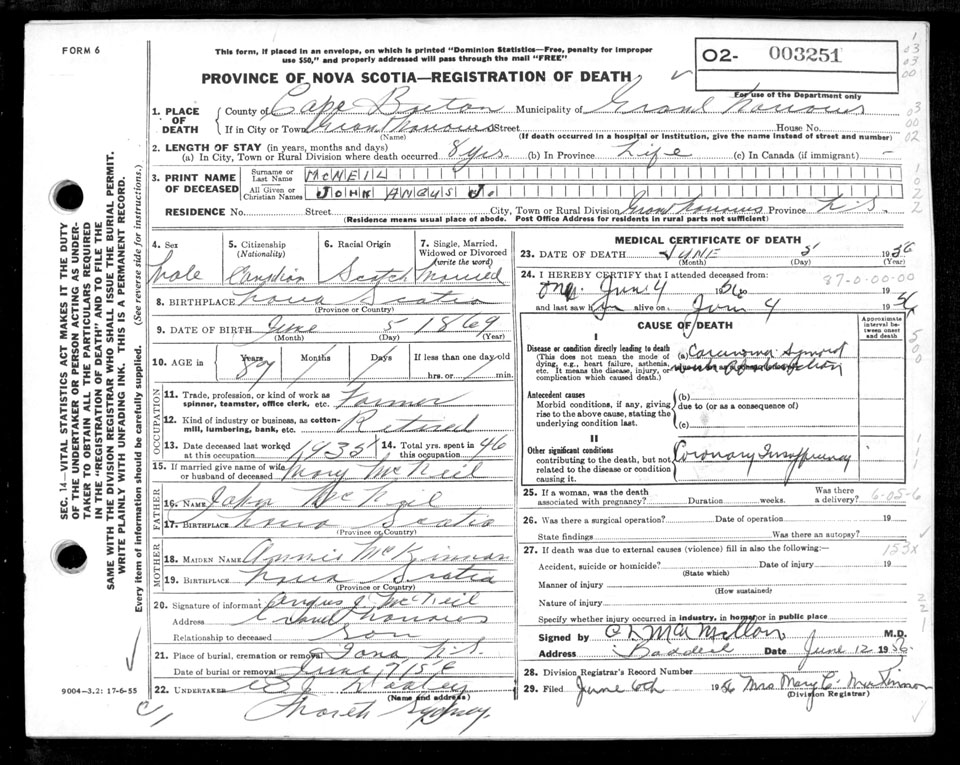 FORM 6
This form, if placed in an envelope, on which is printed "Dominion Statistics—Free, penalty for improper
use $50," and properly addressed will pass through the mail "FREE"
PROVINCE OF NOVA SCOTIA—REGISTRATION OF DEATH
O2- 003251
For use of the Department only
1. PLACE OF DEATH
County of Cape Breton Municipality of Grand Narrows
If in City or Town Grand Narrows Street House No.
(Name) (If death occurred in a hospital or institution, give the name instead of street and number)
2. LENGTH OF STAY (in years, months and days)
(a) In City, Town or Rural Division where death occurred 8 yrs. (b) In Province Life (c) In Canada (if immigrant) -
3. PRINT NAME OF DECEASED
Surname or Last Name MCNEIL
All Given or Christian Names JOHN ANGUS J.
RESIDENCE No. Street City, Town or Rural Division Grand Narrows Province N.S.
(Residence means usual place of abode. Post Office Address for residents in rural parts not sufficient)
4. Sex
Male
5. Citizenship
(Nationality)
Canadian
6. Racial Origin
Scotch
7. Single, Married,
Widowed or Divorced
(write the word)
Married
8. BIRTHPLACE Nova Scotia
(Province or Country)
9. DATE OF BIRTH June 5 1869
(Month) (Day) (Year)
10. AGE in Years Months Days If less than one day old
87 hrs. or min.
OCCUPATION
11. Trade, profession, or kind of work as
spinner, teamster, office clerk, etc. Farmer
12. Kind of industry or business, as cotton-
mill, lumbering, bank, etc. Retired
13. Date deceased last worked
at this occupation 1935
14. Total yrs. spent in
this occupation 46
15. If married give name of wife
or husband of deceased Mary McNeil
FATHER
16. Name John McNeil
17. BIRTHPLACE Nova Scotia
(Province or Country)
MOTHER
18. MAIDEN NAME Annie McKinnon
19. BIRTHPLACE Nova Scotia
(Province or Country)
20. Signature of informant Angus J. McNeil
Address Grand Narrows
Relationship to deceased Son
21. Place of burial, cremation or removal Iona N.S.
Date of burial or removal June 7 1956
22. UNDERTAKER
(Name and address)
North Sydney.
9004-3.2: 17-6-55
SEC. 14—VITAL STATISTICS ACT MAKES IT THE DUTY
OF THE UNDERTAKER OR PERSON ACTING AS UNDER-
TAKER TO OBTAIN ALL THE PARTICULARS REQUIRED
IN THE "REGISTRATION OF DEATH" AND TO FILE THE
SAME WITH THE DIVISION REGISTRAR WHO SHALL ISSUE THE BURIAL PERMIT.
WRITE PLAINLY WITH UNFADING INK. THIS IS A PERMANENT RECORD.
Every item of information should be carefully supplied. (See reverse side for instructions.)
MEDICAL CERTIFICATE OF DEATH
23. DATE OF DEATH JUNE 5 1956
(Month) (Day) (Year)
24. I HEREBY CERTIFY that I attended deceased from:
June 4 56 to 19
37-0-00-00
and last saw him alive on June 4 1956
CAUSE OF DEATH
Approximate
interval be-
tween onset
and death
I
Disease or condition directly leading to death
(This does not mean the mode of
dying, e.g., heart failure, asthenia,
etc. It means the disease, injury, or
complication which caused death.)
(a) Carcinoma Sigmoid
Antecedent causes
Morbid conditions, if any, giving
rise to the above cause, stating the
underlying condition last.
(b)
due to (or as a consequence of)
(c)
II
Other significant conditions
contributing to the death, but not
related to the disease or condition
causing it.
Coronary Insufficiency
25. If a woman, was the death
associated with pregnancy? Duration weeks. Was there
a delivery?
26. Was there a surgical operation? Date of operation 19
State findings Was there an autopsy?
27. If death was due to external causes (violence) fill in also the following:—
153X
Accident, suicide or homicide? Date of injury 19
(State which)
Manner of injury
(How sustained)
Nature of injury
Specify whether injury occurred in industry, in home, or in public place
Signed by C L MacMillan M.D.
Address Baddeck Date June 12 1956
28. Division Registrar's Record Number
29. Filed June 6th 1956 Mrs Mary C. MacKinnon
(Division Registrar)